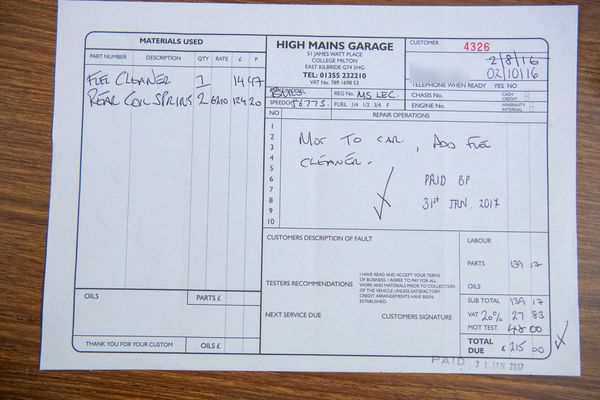 MATERIALS USED
PART NUMBER DESCRIPTION QTY RATE £ P
FUEL CLEANER 1 14 47
REAR COIL SPRING 2 62.10 124 20
OILS PARTS £
THANK YOU FOR YOUR CUSTOM OILS £
HIGH MAINS GARAGE
51 JAMES WATT PLACE
COLLEGE MILTON
EAST KILBRIDE G74 5HG
TEL: 01355 232210
VAT No. 789 1698 53
CUSTOMER 4326
2/8/16
02/10/16
TELEPHONE WHEN READY YES NO
REG No. M5 LEC. CHASSIS No. CASH CREDIT
SPEEDO 86775. FUEL 1/4 1/2 3/4 F ENGINE No. WARRANTY INTERNAL
NO REPAIR OPERATIONS
1
2 MOT TO CAR, ADD FUEL
3
4 CLEANER.
5
6 PAID BP
7
8 31st JAN. 2017
9
10
CUSTOMERS DESCRIPTION OF FAULT
LABOUR
PARTS 139 17
TESTERS RECOMMENDATIONS
I HAVE READ AND ACCEPT YOUR TERMS
OF BUSINESS. I AGREE TO PAY FOR ALL
WORK AND MATERIALS PRIOR TO COLLECTION
OF THE VEHICLE UNLESS SATISFACTORY
CREDIT ARRANGEMENTS HAVE BEEN
ESTABLISHED.
OILS
SUB TOTAL 139 17
NEXT SERVICE DUE CUSTOMERS SIGNATURE
VAT 20% 27 83
MOT TEST 48 00
TOTAL DUE £ 215 00
PAID 31 JAN 2017